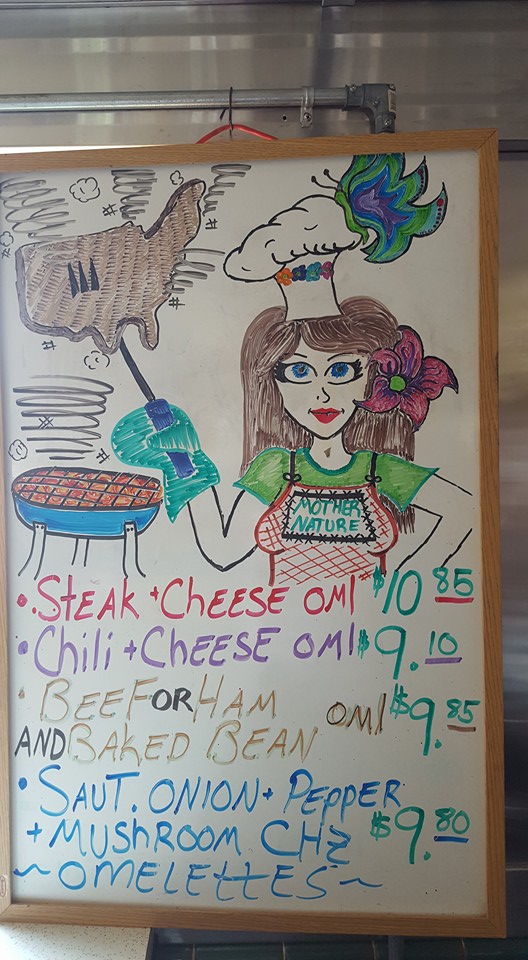 MOTHER
NATURE
• STEAK + CHEESE OML $10 85
• Chili + CHEESE OML $9.10
• BEEF OR HAM
AND BAKED BEAN OML $9.85
• SAUT. ONION + PEPPER
+ MUSHROOM CHZ $9.80
~OMELETTES~